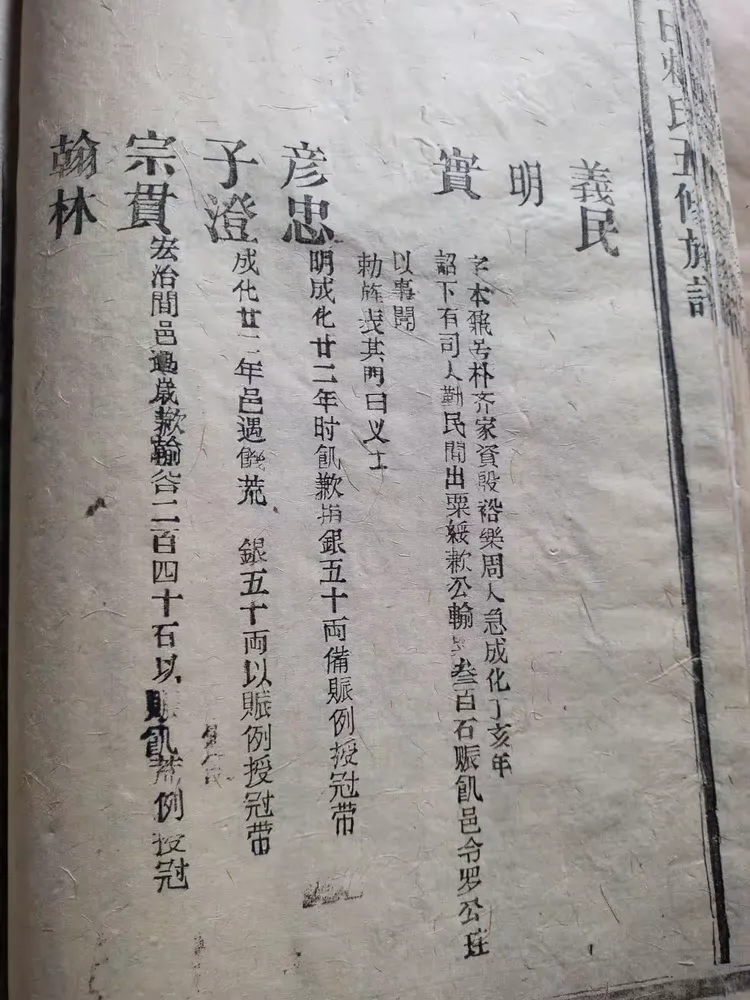 賴氏五修族譜
義民
明
實
字本飛号朴齐家資殷裕樂周人急成化丁亥年
詔下有司人勸民間出粟緩歉公輸 叁百石賑飢邑令罗公珏
以事聞
勅旌表其門曰义士
彦忠 明成化廿二年时飢歉 銀五十両備賑例授冠带
子澄 成化廿二年邑遇饑荒 銀五十両以賑例授冠带
宗貫 宏治間邑遇歲歉輸谷二百四十石以賑飢荒例授冠
翰林